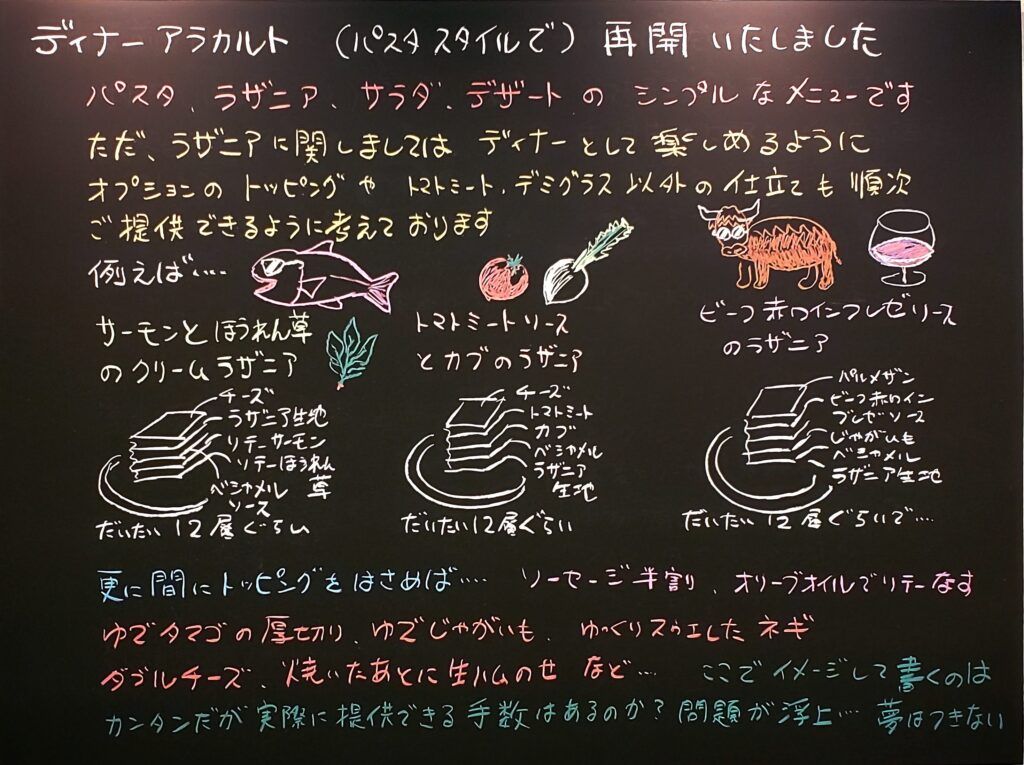 ディナーアラカルト （パスタスタイルで）再開いたしました
パスタ、ラザニア、サラダ、デザートの シンプルなメニューです
ただ、ラザニアに関しましては ディナーとして楽しめるように
オプションの トッピングや トマトミート、デミグラス以外の仕立ても順次
ご提供できるように考えております
例えば‥‥
サーモンとほうれん草
のクリームラザニア
チーズ
ラザニア生地
ソテーサーモン
ソテーほうれん草
ベシャメルソース
だいたい12層ぐらい
トマトミートソース
とカブのラザニア
チーズ
トマトミート
カブ
ベシャメル
ラザニア
生地
だいたい12層ぐらい
ビーフ赤ワインブレゼソース
のラザニア
パルメザン
ビーフ赤ワイン
ブレゼソース
じゃがいも
ベシャメル
ラザニア生地
だいたい12層ぐらいで‥‥
更に間にトッピングをはさめば‥‥ ソーセージ半割、オリーブオイルでソテーなす
ゆでタマゴの厚切り、ゆでじゃがいも、ゆっくりスゥエしたネギ
ダブルチーズ、焼いたあとに生ハムのせ など‥‥ ここでイメージして書くのは
カンタンだが実際に提供できる手数はあるのか？問題が浮上‥‥ 夢はつきない